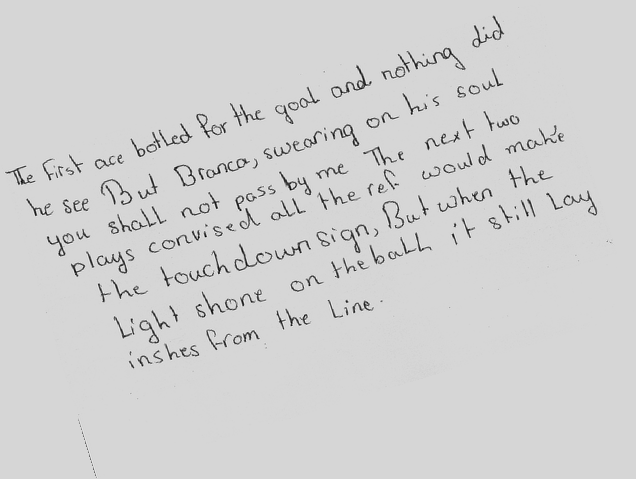 The First ace botled for the goal and nothing did
he see But Branca, swearing on his soul
you shall not pass by me The next two
plays convised all the ref. would make
the touchdown sign, But when the
Light shone on the ball it still Lay
inshes from the Line.